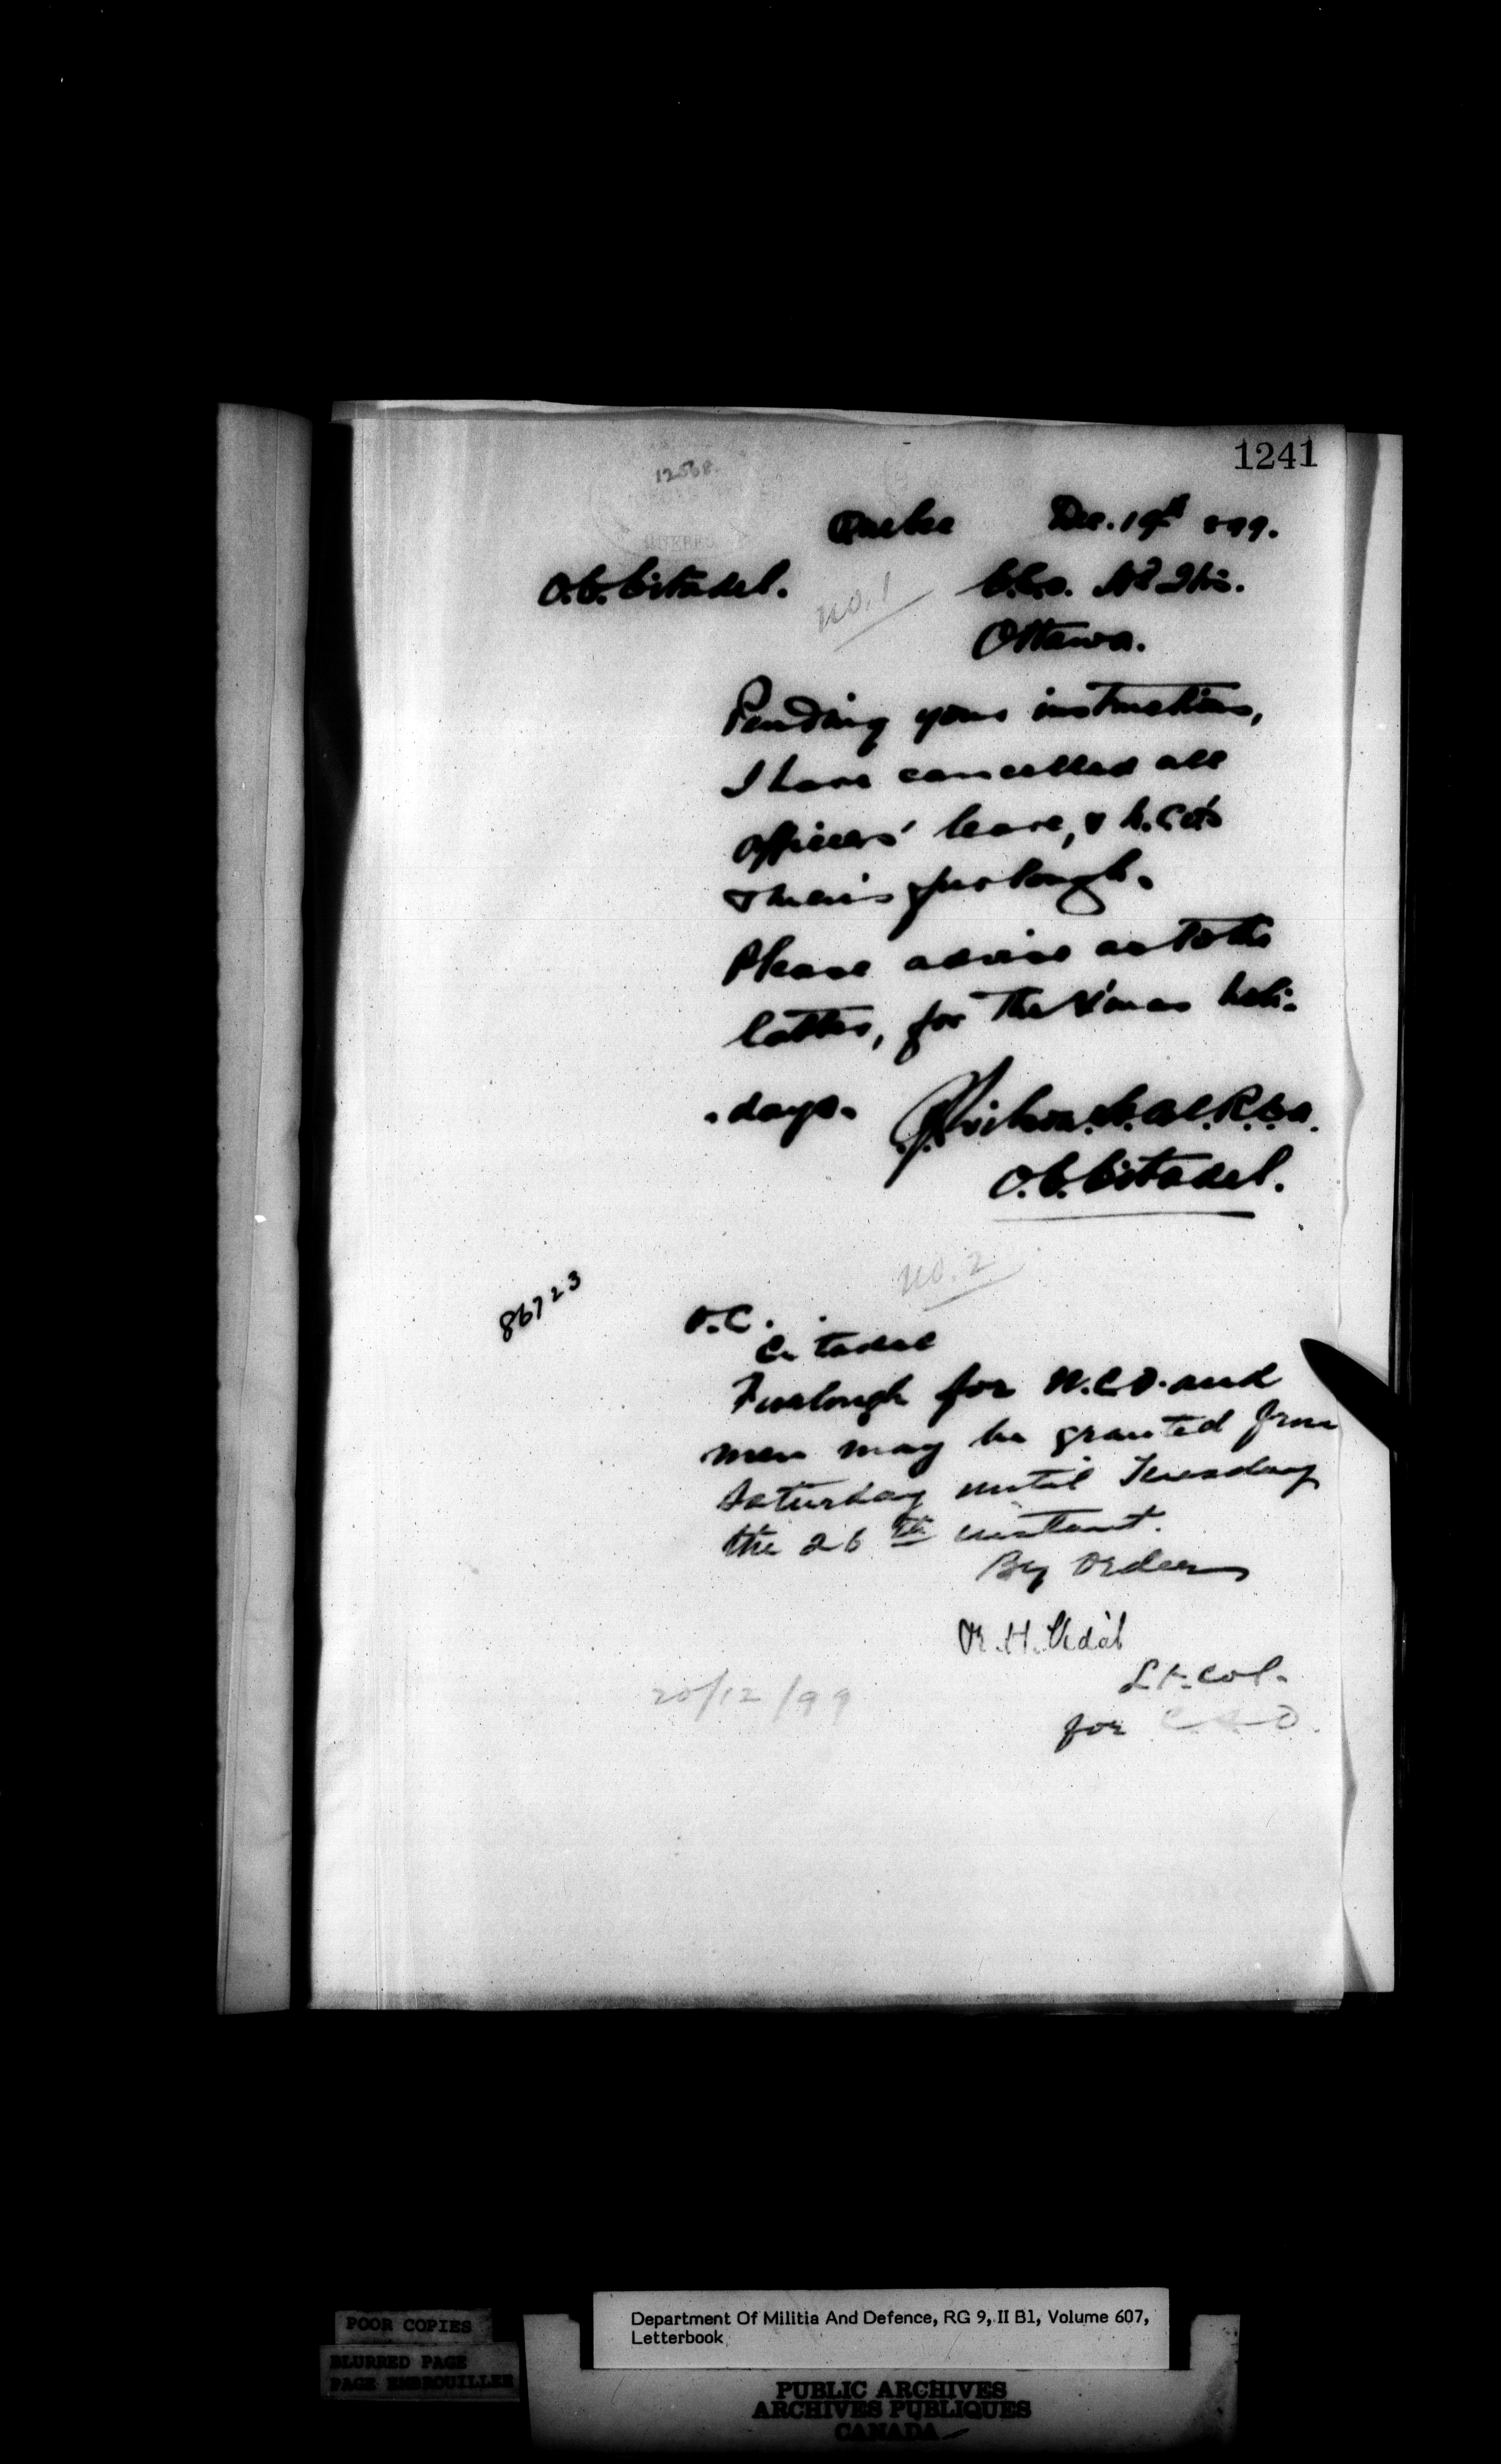 1241
12568.
QUEBEC
Quebec Dec. 19th 899.
O.C. Citadel. no. 1 C.S.O. Hd Qrs.
Ottawa.
Pending your instructions,
I have cancelled all
officers' leave, & N.C.O's
& men's furlough.
Please advise as to the
latter, for the X'mas holi-
-days.
R.C.A.
O.C. Citadel.
no. 2
86723
O.C.
Citadel
Furlough for N.C.O. and
men may be granted from
Saturday until Tuesday
the 26th instant.
By Order
H. Vidal
Lt. Col.
20/12/99
for C.S.O.
POOR COPIES
BLURRED PAGE
PAGE EMBROUILLEE
Department Of Militia And Defence, RG 9, II B1, Volume 607,
Letterbook
PUBLIC ARCHIVES
ARCHIVES PUBLIQUES
CANADA